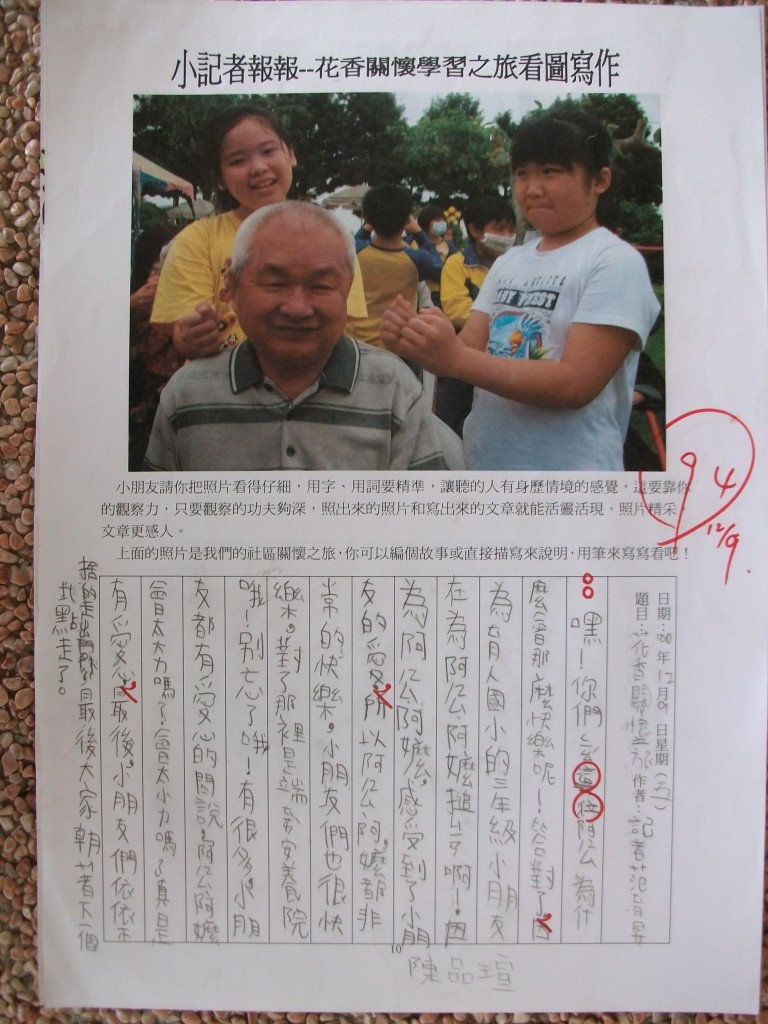 小記者報報--花香關懷學習之旅看圖寫作
小朋友請你把照片看得仔細，用字、用詞要精準，讓聽的人有身歷情境的感覺，這要靠你
的觀察力，只要觀察的功夫夠深，照出來的照片和寫出來的文章就能活靈活現，照片精采，
文章更感人。
上面的照片是我們的社區關懷之旅，你可以編個故事或直接描寫來說明，用筆來寫寫看吧！
94
12/9
日期：年12月9日星期（五）
題目：花香關懷之旅 作者：記者
嘿！你們這位阿公為什
麼會那麼快樂呢！答對了因
為育人國小的三年級小朋友
在為阿公阿嬤搥背啊！因
為阿公阿嬤感受到了小朋
友的愛所以阿公阿嬤都非
常的快樂。小朋友們也很快
樂。對了那裡是瑞安養院
哦！別忘了哦！有很多小朋
友都有愛心的問說：阿公阿嬤
會太大力嗎？會太小力嗎？真是
有愛心最後小朋友們依依不
捨的走出門外最後大家朝著下一個
地點走了。
10
陳品瑄